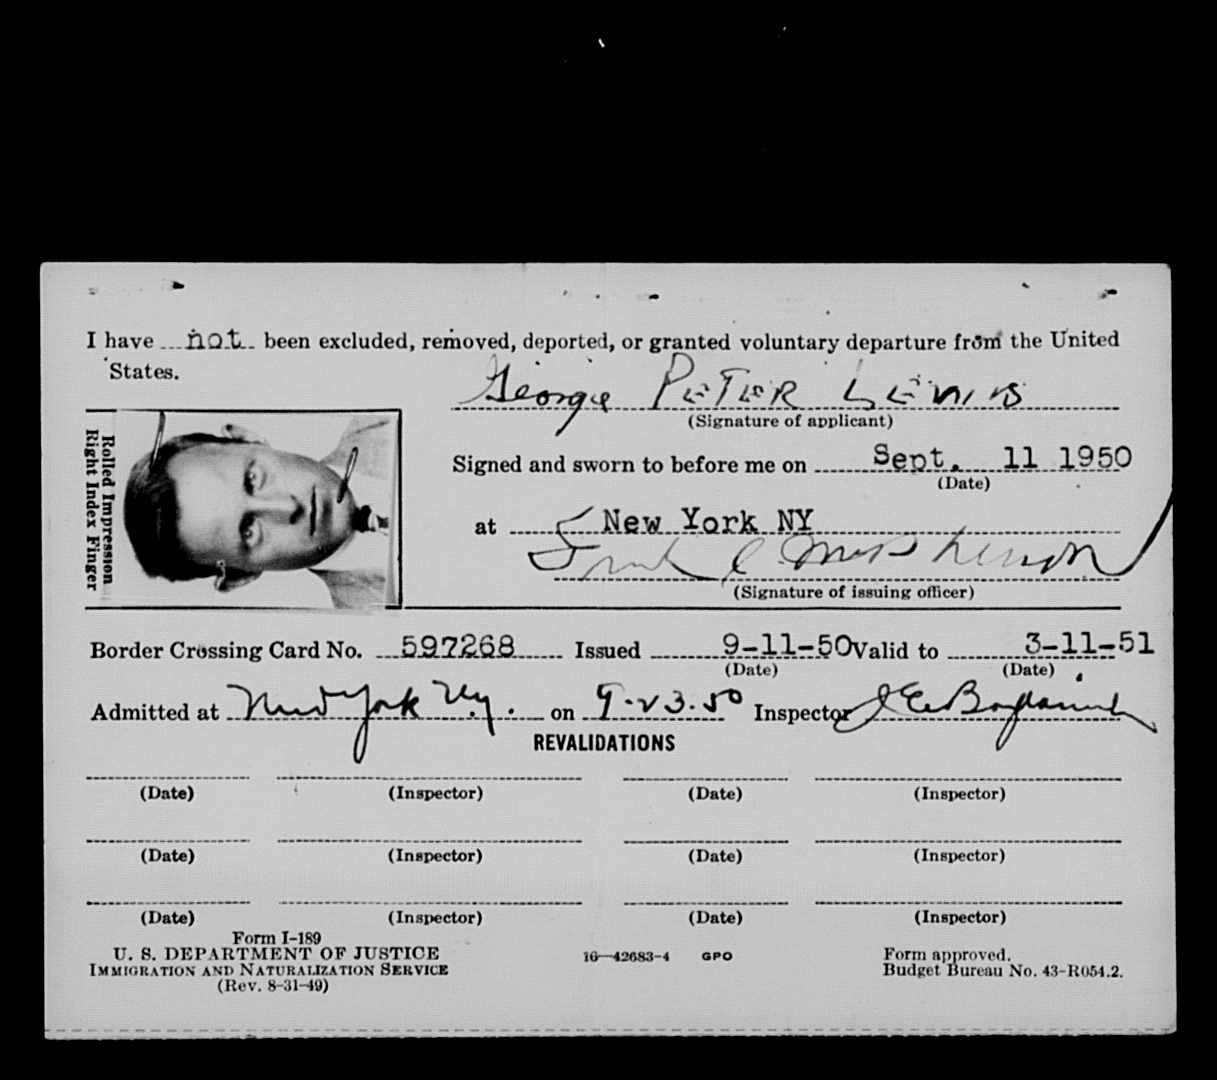 I have not been excluded, removed, deported, or granted voluntary departure from the United
States.
George PETER LEWIS
(Signature of applicant)
Rolled Impression
Right Index Finger
Signed and sworn to before me on Sept. 11 1950
(Date)
at New York NY
(Signature of issuing officer)
Border Crossing Card No. 597268 Issued 9-11-50 Valid to 3-11-51
(Date) (Date)
Admitted at New York Ny. on 9-23.50 Inspector
REVALIDATIONS
(Date) (Inspector) (Date) (Inspector)
(Date) (Inspector) (Date) (Inspector)
(Date) (Inspector) (Date) (Inspector)
Form I-189
U. S. DEPARTMENT OF JUSTICE
IMMIGRATION AND NATURALIZATION SERVICE
(Rev. 8-31-49)
16—42683-4 GPO
Form approved.
Budget Bureau No. 43-R054.2.